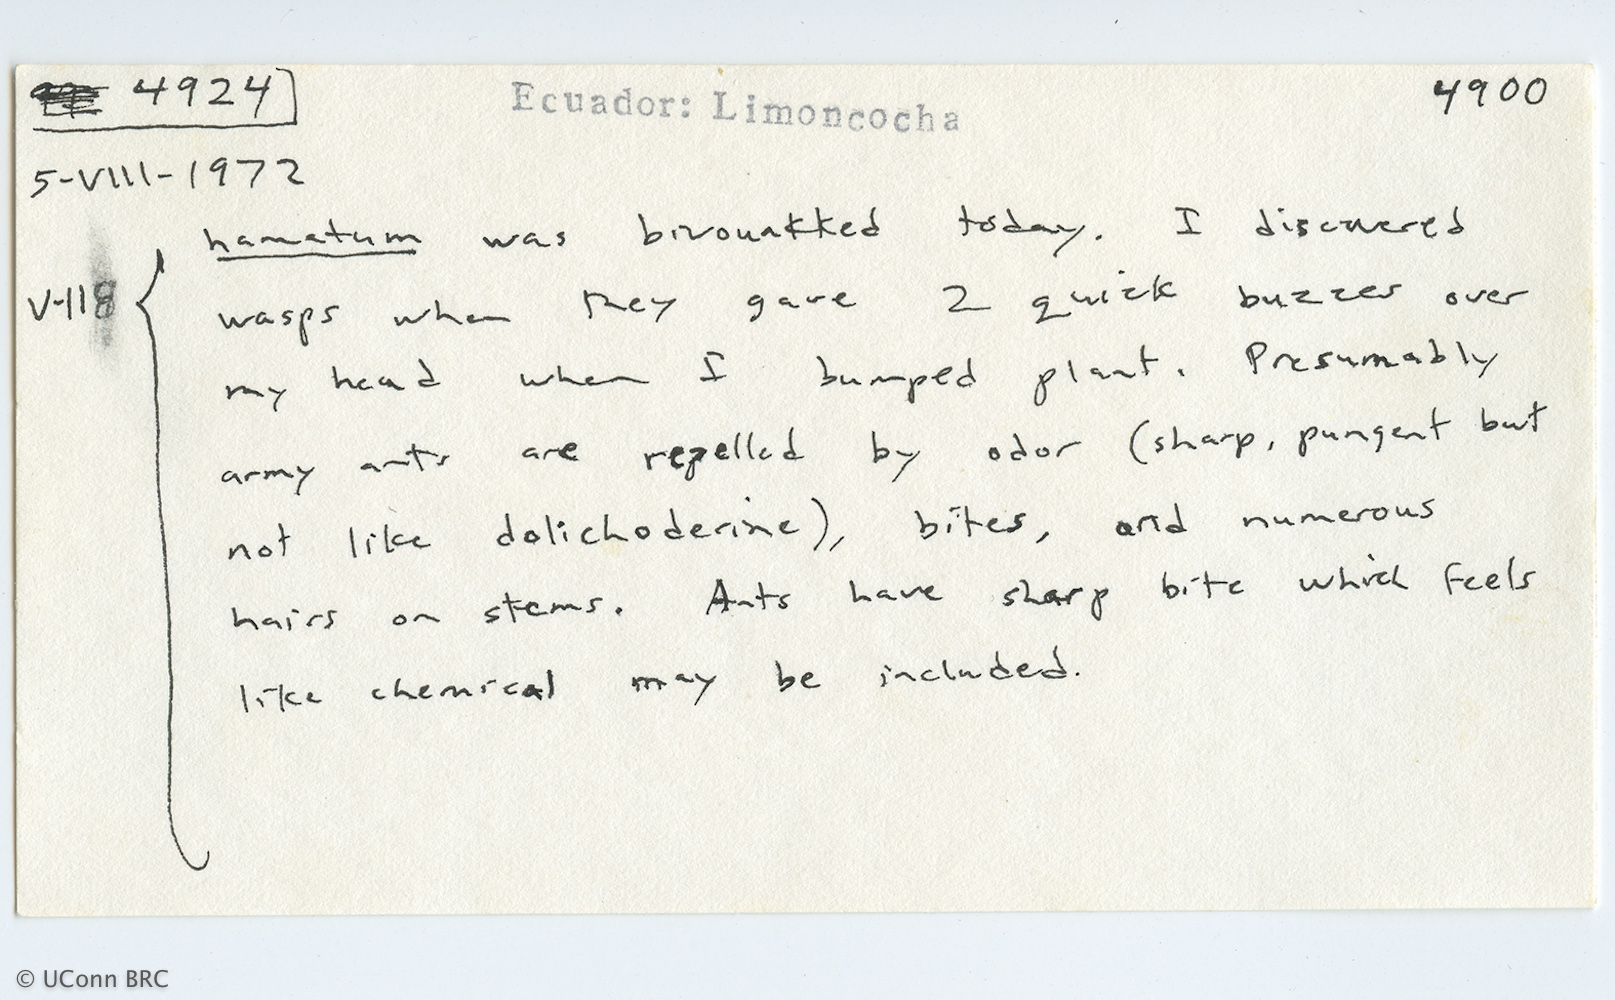 4924
Ecuador: Limoncocha
4900
5-VIII-1972
hamatum was bivouakked today. I discovered
V-118
wasps when they gave 2 quick buzzes over
my head when I bumped plant. Presumably
army ants are repelled by odor (sharp, pungent but
not like dolichoderine), bites, and numerous
hairs on stems. Ants have sharp bite which feels
like chemical may be included.
© UConn BRC